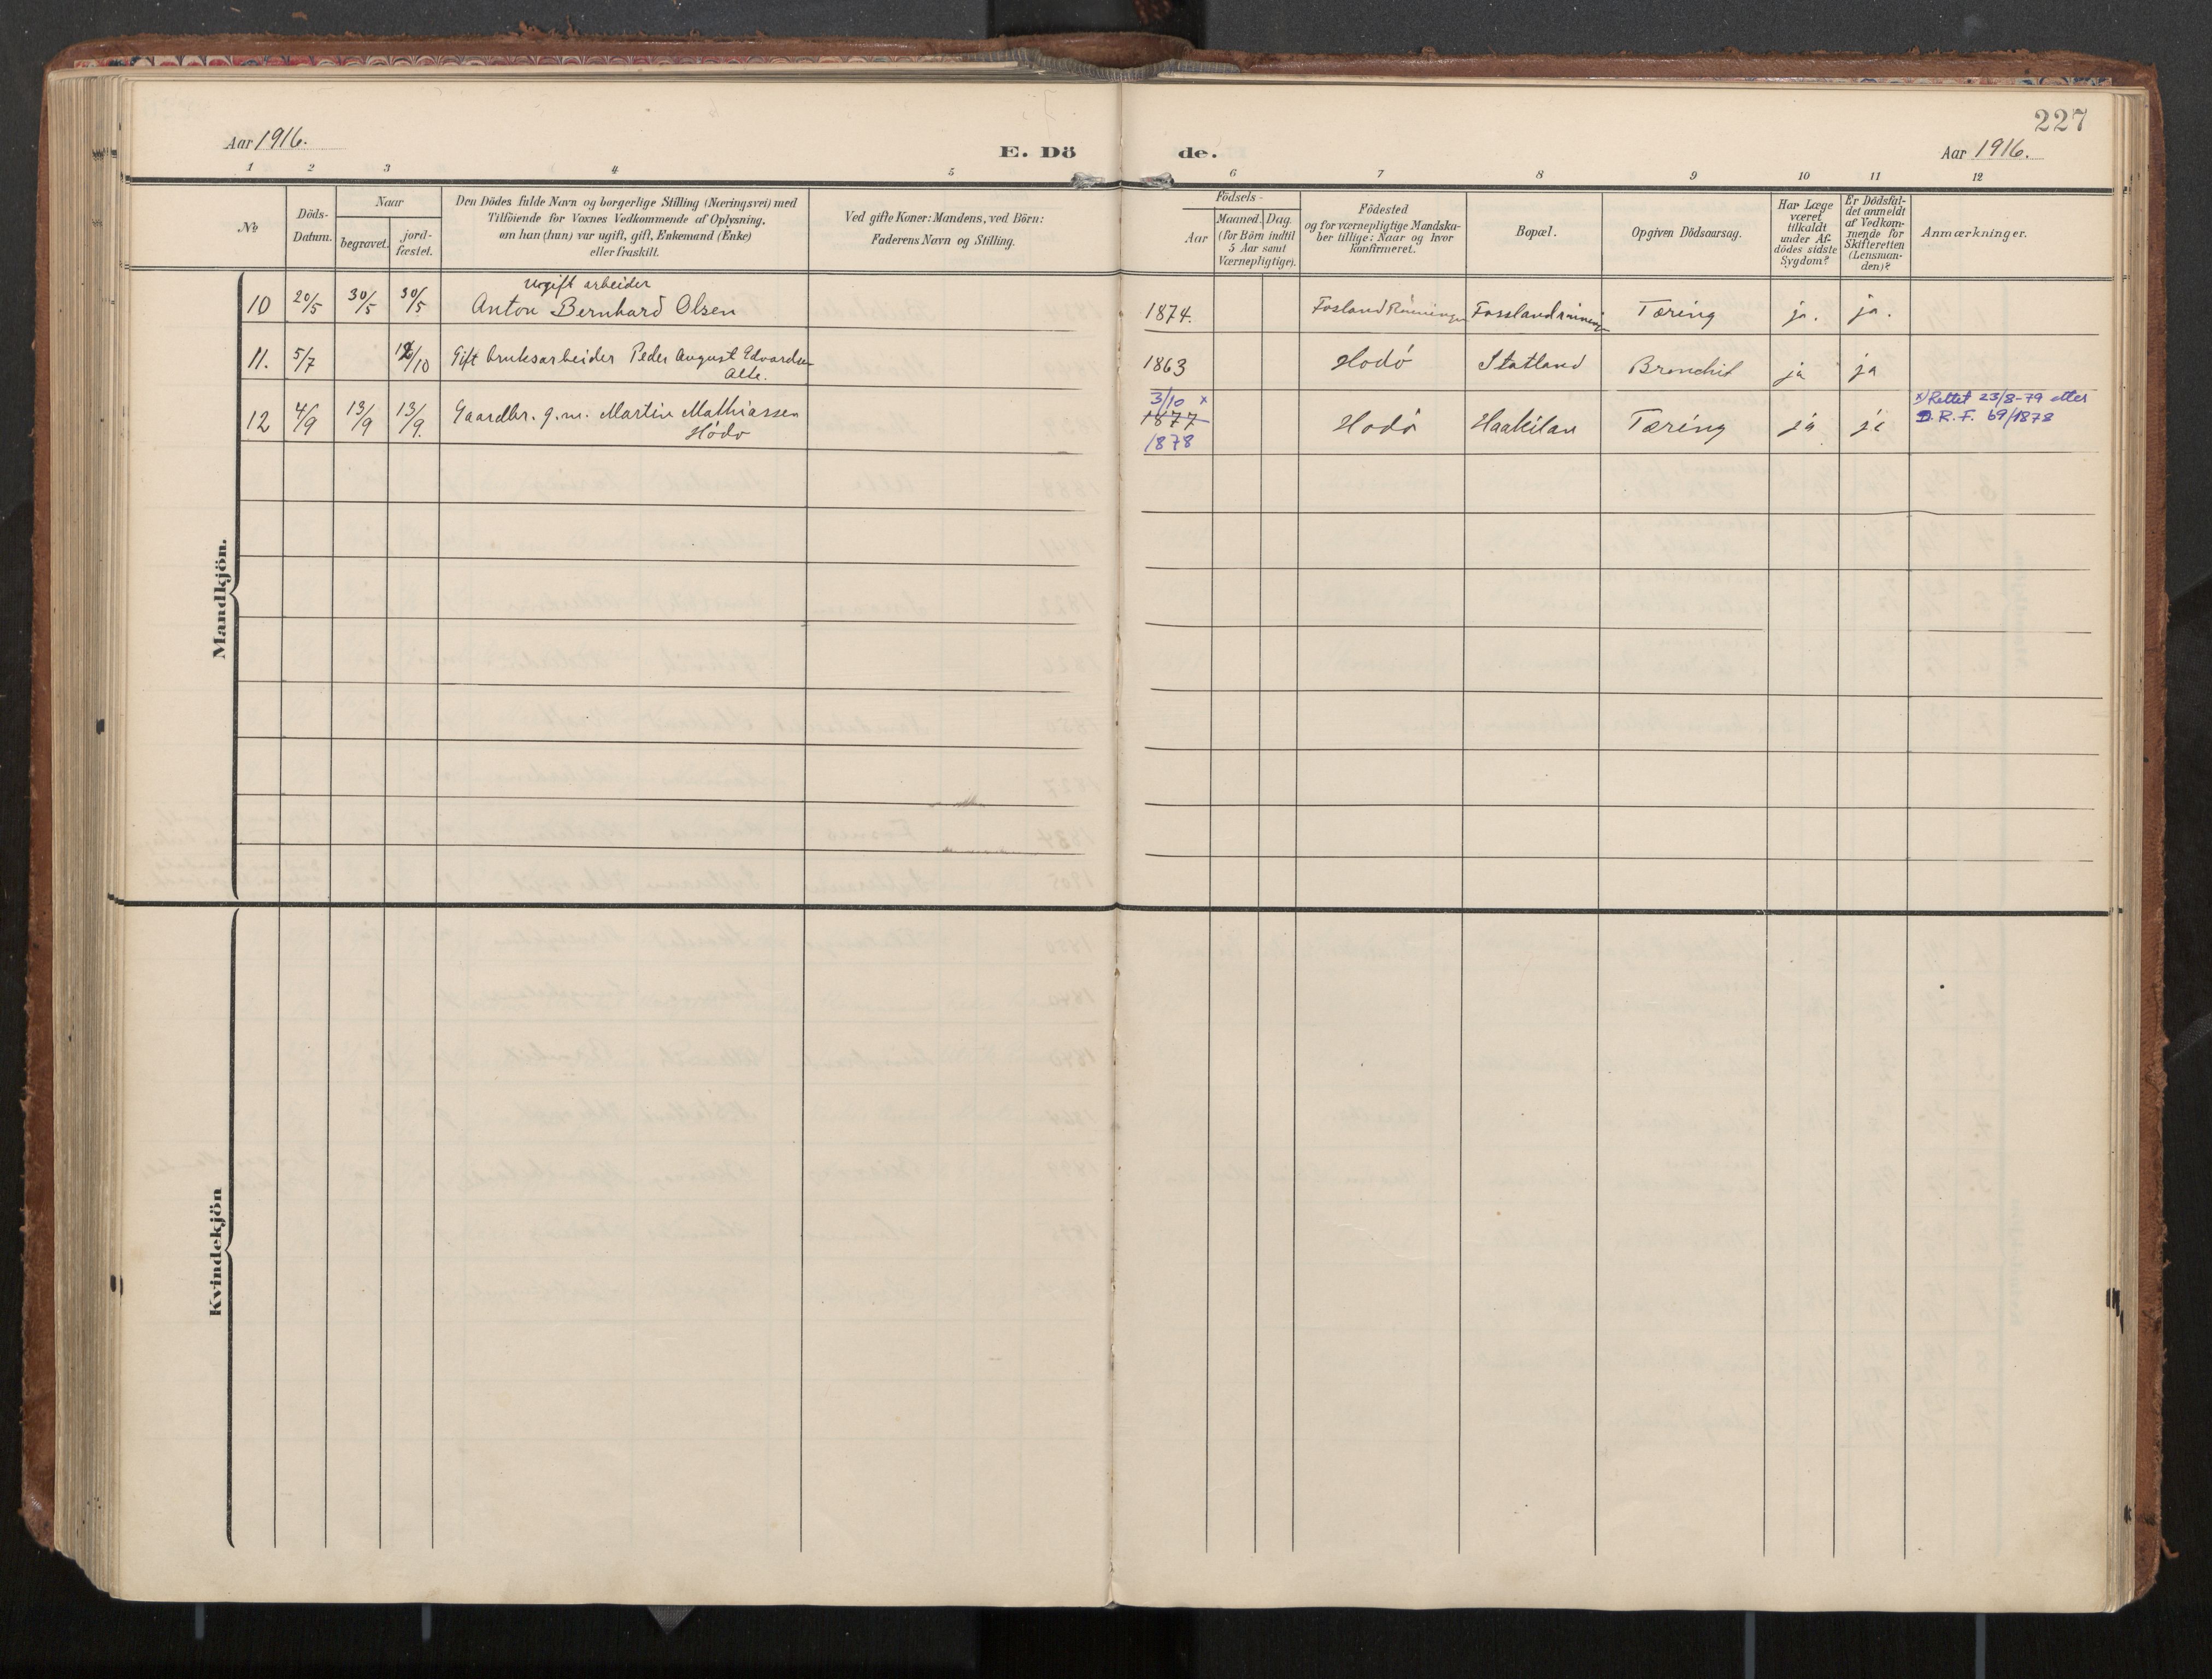 227
Aar 1916.
E. Dö de.
Aar 1916.
1 2 3 4 5 6 7 8 9 10 11 12
No
Döds-
Datum.
Naar
begravet.
jord-
fæstet.
Den Dödes fulde Navn og borgerlige Stilling (Næringsvei) med
Tilföiende for Voxnes Vedkommende af Oplysning,
om han (hun) var ugift, gift, Enkemand (Enke)
eller fraskilt.
Ved gifte Koner: Mandens, ved Börn:
Faderens Navn og Stilling.
Födsels-
Aar
Maaned. Dag.
(for Börn indtil
5 Aar samt
Værnepligtige).
Födested
og for værnepligtige Mandska-
ber tillige: Naar og hvor
konfirmeret.
Bopæl.
Opgiven Dödsaarsag.
Har Læge
været
tilkaldt
under Af-
dödes sidste
Sygdom?
Er Dödsfal-
det anmeldt
af Vedkom-
mende for
Skifteretten
(Lensman-
den)?
Anmærkninger.
Mandkjön.
ugift arbeider
10 20/5 30/5 30/5 Anton Bernhard Olsen 1874. Fosland Rönningen Fosslandrönning Tæring ja. ja.
11. 5/7 12/10 Gift bruksarbeider Peder August Edvardsen 1863 Hodö Statland Bronchit ja ja
Alte.
3/10 x
x) Rettet 23/8-79 etter
12 4/9 13/9 13/9. Gaardbr. g.m. Martin Mathiassen 1877 Hodö Haakilan Tæring ja ja D.R.F. 69/1878
Hödö
1878
Kvindekjön